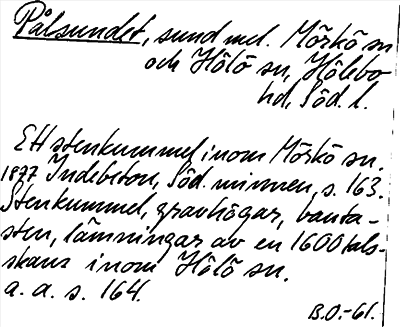 Pålsundet, sund mel. Mörkö sn
och Hölö sn, Hölebo
hd, Söd. l.
Ett stenkummel inom Mörkö sn.
1877 Indebetou, Söd. minnen, s. 163.
Stenkummel, gravhögar, bauta-
sten, lämningar av en 1600tals-
skans inom Hölö sn.
a. a. s. 164.
B.O.-61.